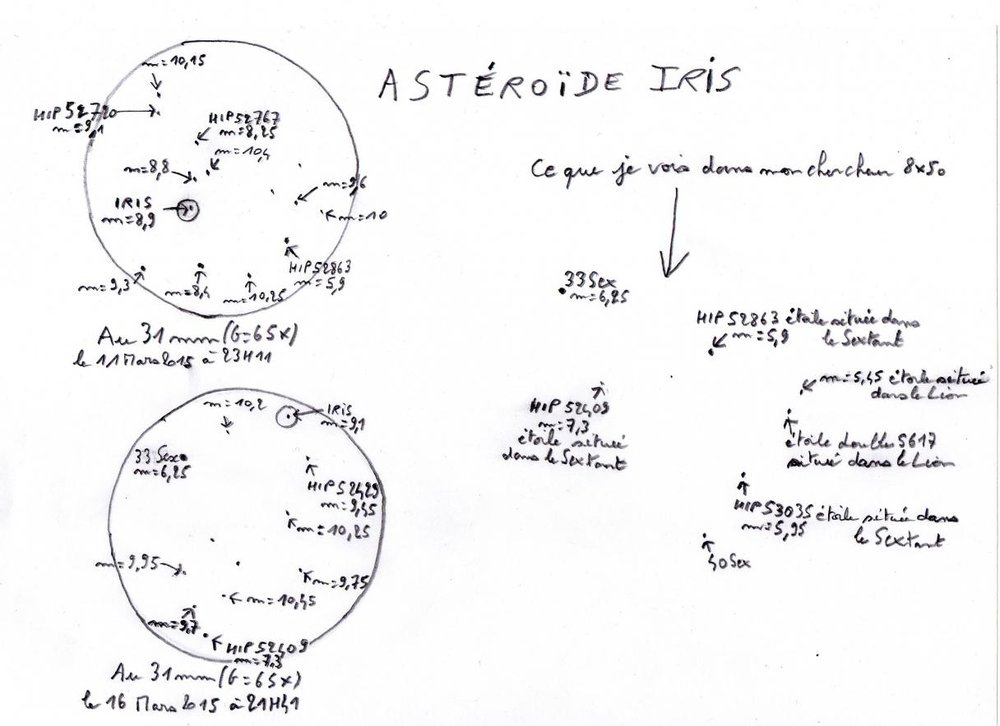 ASTÉROÏDE IRIS
m=10,15
HIP 52720
m=9,1
HIP 52767
m=8,25
m=10,4
m=8,8
IRIS
m=8,9
m=9,6
m=10
HIP 52863
m=5,9
m=9,3
m=8,4
m=10,25
Au 31mm (G=65x)
le 11 Mars 2015 à 23H11
m=10,2
IRIS
m=9,1
33 Sex
m=6,25
HIP 52429
m=9,45
m=10,25
m=9,95
m=9,75
m=10,45
m=9,7
HIP 52409
m=7,3
Au 31mm (G=65x)
le 16 Mars 2015 à 21H41
Ce que je vois dans mon chercheur 8x50
33 Sex
m=6,25
HIP 52863 étoile située dans
m=5,9 le Sextant
m=5,45 étoile située
dans le Lion
HIP 52409
m=7,3
étoile située
dans le Sextant
étoile double S617
située dans le Lion
HIP 53035 étoile située dans
m=5,95 le Sextant
40 Sex